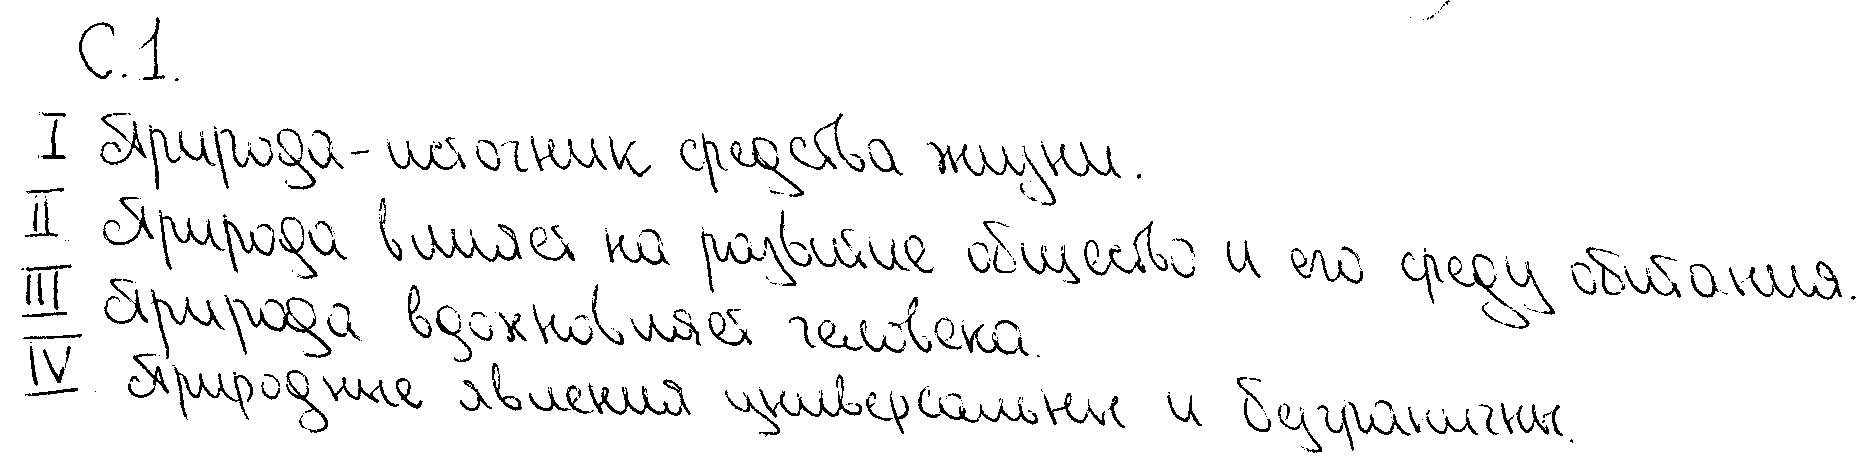 С.1.
I Природа - источник средства жизни.
II Природа влияет на развитие общество и его среду обитания.
III Природа вдохновляет человека.
IV Природные явления универсальны и безграничны.